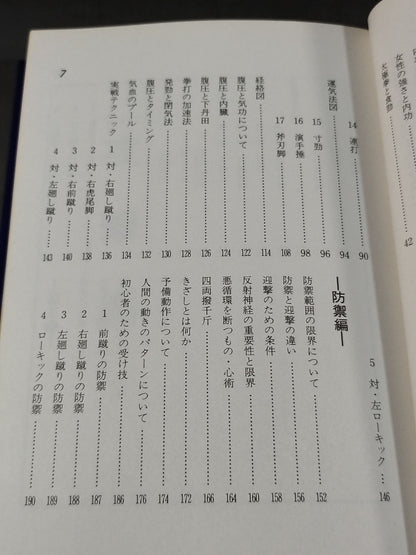 女性の強さと内功
42
運気法図 90
14 連打 94
15 寸勁 96
16 演手捶 98
17 斧刃脚 108
経絡図 114
腹圧と気功について 122
腹圧と内臓 124
腹圧と下丹田 126
拳打の加速法 128
発勁と閉気法 130
気血のプール 132
腹圧とタイミング 134
実戦テクニック
1 対・右廻し蹴り 134
2 対・右虎尾脚 138
3 対・右前蹴り 140
4 対・左廻し蹴り 143
5 対・左ローキック 146
―防禦編―
防禦範囲の限界について 152
防禦と迎撃の違い 156
迎撃のための条件 158
反射神経の重要性と限界 160
悪循環を断つもの・心術 164
四両撥千斤 166
きざしとは何か 172
予備動作について 174
人間の動きのパターンについて 176
初心者のための受け技 186
1 前蹴りの防禦 187
2 右廻し蹴りの防禦 188
3 左廻し蹴りの防禦 189
4 ローキックの防禦 190
7